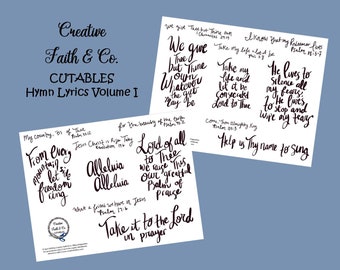 Creative
Faith & Co.
CUTABLES
Hymn Lyrics Volume I
We give Thee but Thine Own
I Know that my Redeemer lives
We give
Thee
But Thine
Own
Whatever
the gift
may be
Take my life and let it be
Take my
life and
let it be
consecrated
Lord to Thee
He lives to
silence all
my fears
He lives
to stop and
wipe my tears
Come, Thou Almighty King
Help us Thy name to sing
My country, 'tis of Thee
From every
mountainside
let
freedom
ring
Jesus Christ is Risen Today
Alleluia
Alleluia
For the beauty of the earth
Lord of all
to Thee
we raise this
our grateful
Psalm of
praise
What a friend we have in Jesus
Take it to the Lord
in prayer
Creative
Faith & Co.